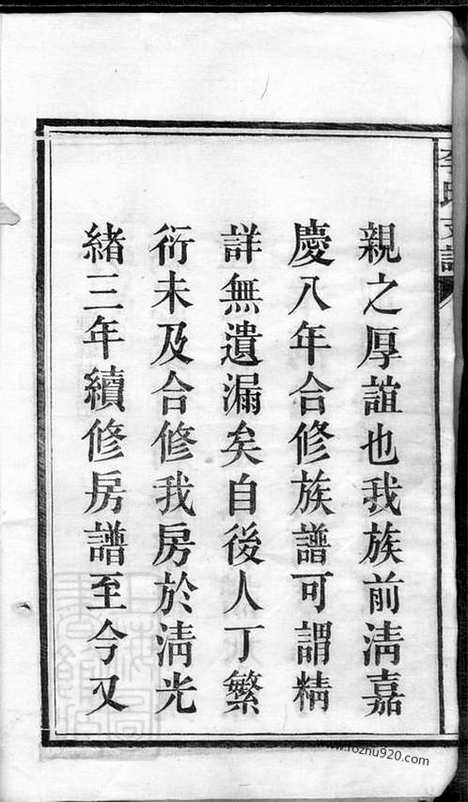 李氏支譜
親之厚誼也我族前淸嘉
慶八年合修族譜可謂精
詳無遺漏矣自後人丁繁
衍未及合修我房於淸光
緒三年續修房譜至今又
www.rozhu920.com